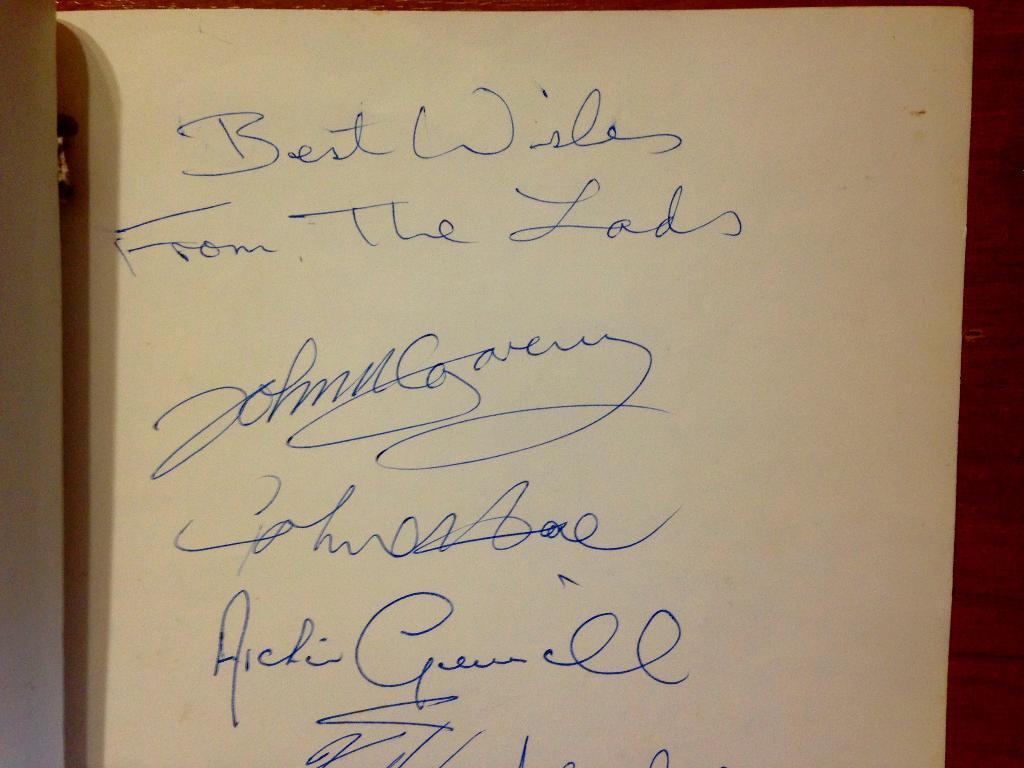 Best Wishes
From The Lads
John McGovern
John O'Hare
Archie Gemmill